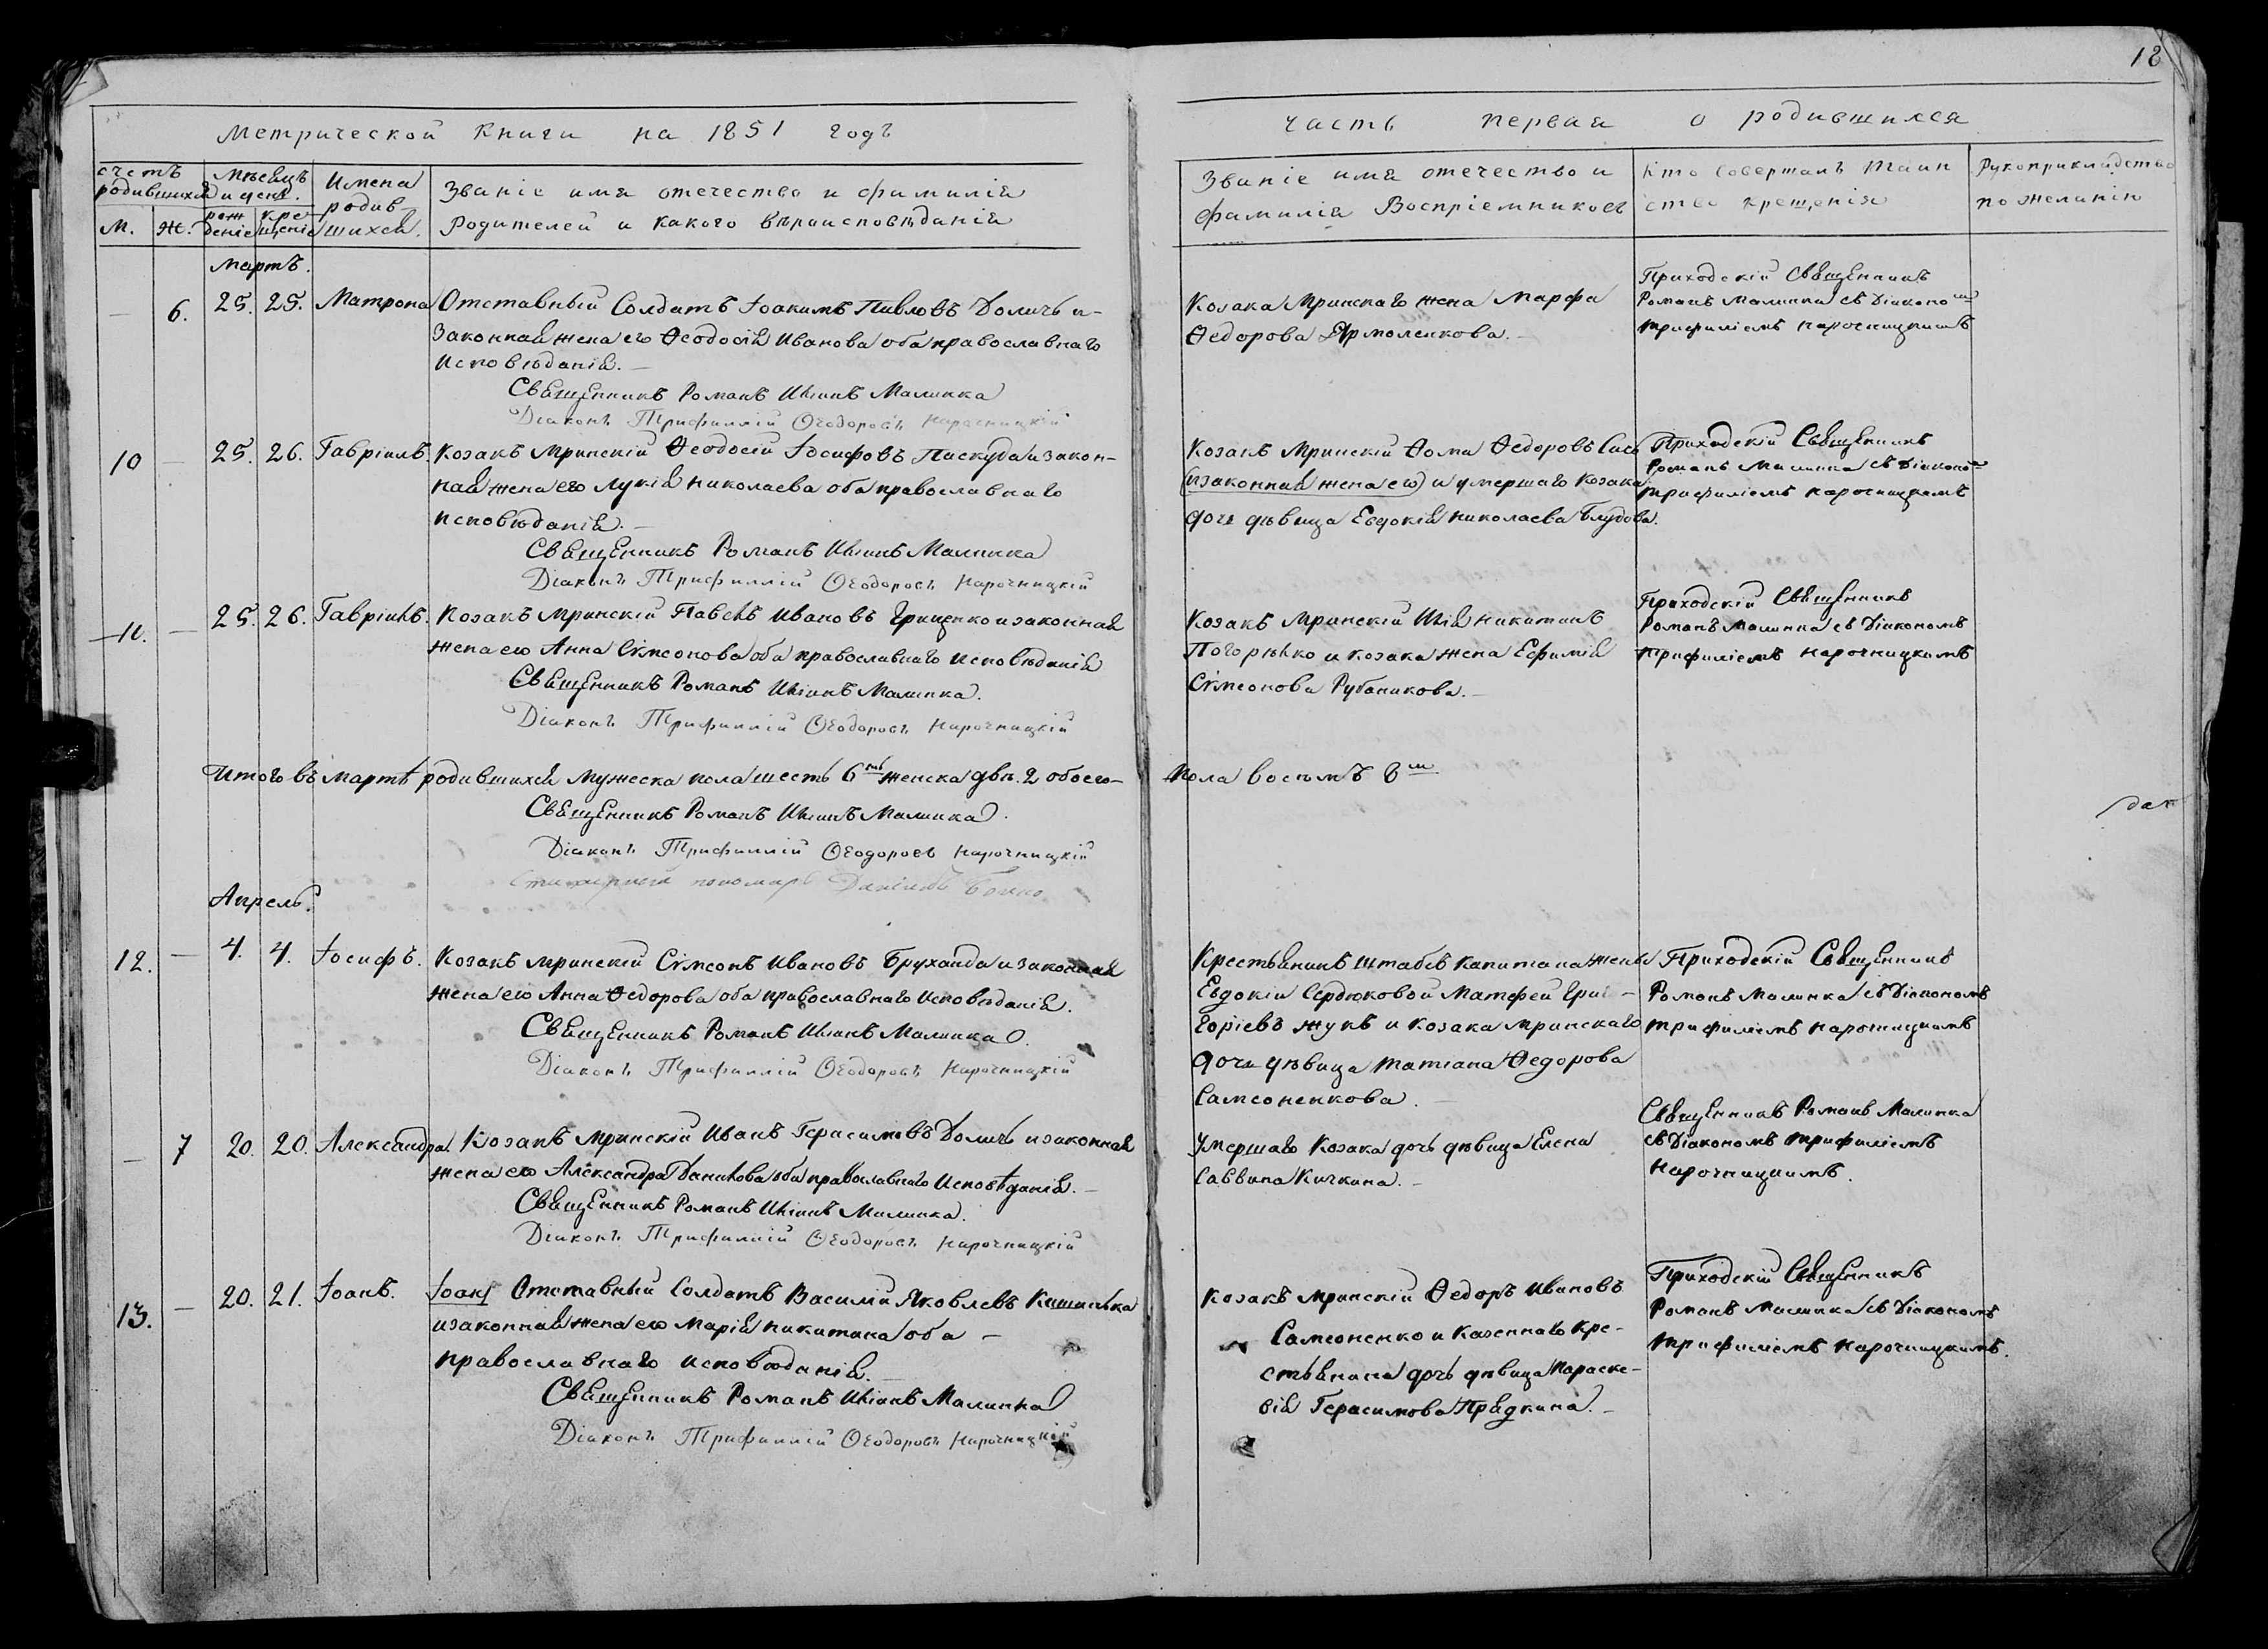 18
Метрической Книги на 1851 годъ
часть первая о родившихся
счетъ родившихся
Мѣсяцъ и день.
Имена родив-шихся.
Званіе имя отечество и фамилія
Родителей и какого вѣроисповѣданія
М.
Ж.
рож деніе
кре щеніе
Званіе имя отечество и
фамилія Воспріемниковъ
Кто совершалъ Таин
ство крещенія
Рукоприкладство
по желанію
Мартъ.
— 6. 25. 25. Матрона
Отставный Солдатъ Іоакимъ Павловъ Доличъ и-
Законная жена его Ѳеодосія Иванова оба православнаго
Исповѣданія.—
Священникъ Романъ Иліинъ Малинка
Діаконъ Трифиллій Ѳеодоровъ Нарочницкій
Козака Мринскаго жена Марфа
Ѳедорова Ярмоленкова.—
Приходскій Священникъ
Романъ Малинка съ Діакономъ
Трифиліемъ Нарочницкимъ
10 — 25. 26. Гавріилъ.
Козакъ Мринскій Ѳеодосій Іосифовъ Паскуда и закон-
ная жена его Лукія Николаева оба православнаго
исповѣданія.—
Священникъ Романъ Иліинъ Малинка
Діаконъ Трифиллій Ѳеодоровъ Нарочницкій
Козакъ Мринскій Ѳома Ѳедоровъ Сись
(изаконная жена его) и умершаго Козака
дочь дѣвица Евдокія Николаева Блудова.
Приходскій Священникъ
Романъ Малинка съ Діакономъ
Трифиліемъ Нарочницкимъ
11. — 25. 26. Гавріилъ.
Козакъ Мринскій Павелъ Ивановъ Гриценко и законная
жена его Анна Сімеонова оба православнаго исповѣданія
Священникъ Романъ Иліинъ Малинка.
Діаконъ Трифиллій Ѳеодоровъ Нарочницкій
Козакъ Мринскій Илія Никитинъ
Погорѣлко и козака жена Ефимія
Сімеонова Рубаникова.—
Приходскій Священникъ
Романъ Малинка съ Діакономъ
Трифиліемъ Нарочницкимъ
Итого въ мартѣ родившихся мужеска пола шесть 6ть женска двѣ. 2 обоего—
пола восьмъ 8м
Священникъ Романъ Иліинъ Малинка.
Діаконъ Трифиллій Ѳеодоровъ Нарочницкій
пономарь Даніилъ
Апрель.
12. — 4. 4. Іосифъ.
Козакъ мринскій Сімеонъ Ивановъ Бруханда и законная
жена его Анна Ѳедорова оба православнаго исповѣданія.
Священникъ Романъ Иліинъ Малинка.
Діаконъ Трифиллій Ѳеодоровъ Нарочницкій
Крестьянинъ штабсъ капитана жены
Евдокіи Сердюковой Матфей Гри-
горіевъ Жукъ и козака мринскаго
дочь дѣвица Татіана Ѳедорова
Самсоненкова.—
Приходскій Священникъ
Романъ Малинка съ Діакономъ
Трифиліемъ Нарочницкимъ
— 7 20. 20. Александра.
Козакъ мринскій Иванъ Герасимовъ Доличъ и законная
жена его Александра Данилова оба православнаго Исповѣданія.—
Священникъ Романъ Иліинъ Малинка.
Діаконъ Трифиллій Ѳеодоровъ Нарочницкій
Умершаго Козака дочь дѣвица Елена
Саввина Кичкина.—
Священникъ Романъ Малинка
съ Діакономъ Трифиліемъ
Нарочницкимъ.
13. — 20. 21. Іоанъ.
Іоан Отставный Солдатъ Василій Яковлевъ Кишинька
и законная жена его Марія Никитина оба —
православнаго исповѣданія.—
Священникъ Романъ Иліинъ Малинка
Діаконъ Трифиллій Ѳеодоровъ Нарочницкій
Козакъ мринскій Ѳедоръ Ивановъ
Самсоненко и казеннаго кре-
стьянина дочь дѣвица Параске-
вія Герасимова Прядкина.—
Приходскій Священникъ
Романъ Малинка съ Діакономъ
Трифиліемъ Нарочницкимъ.